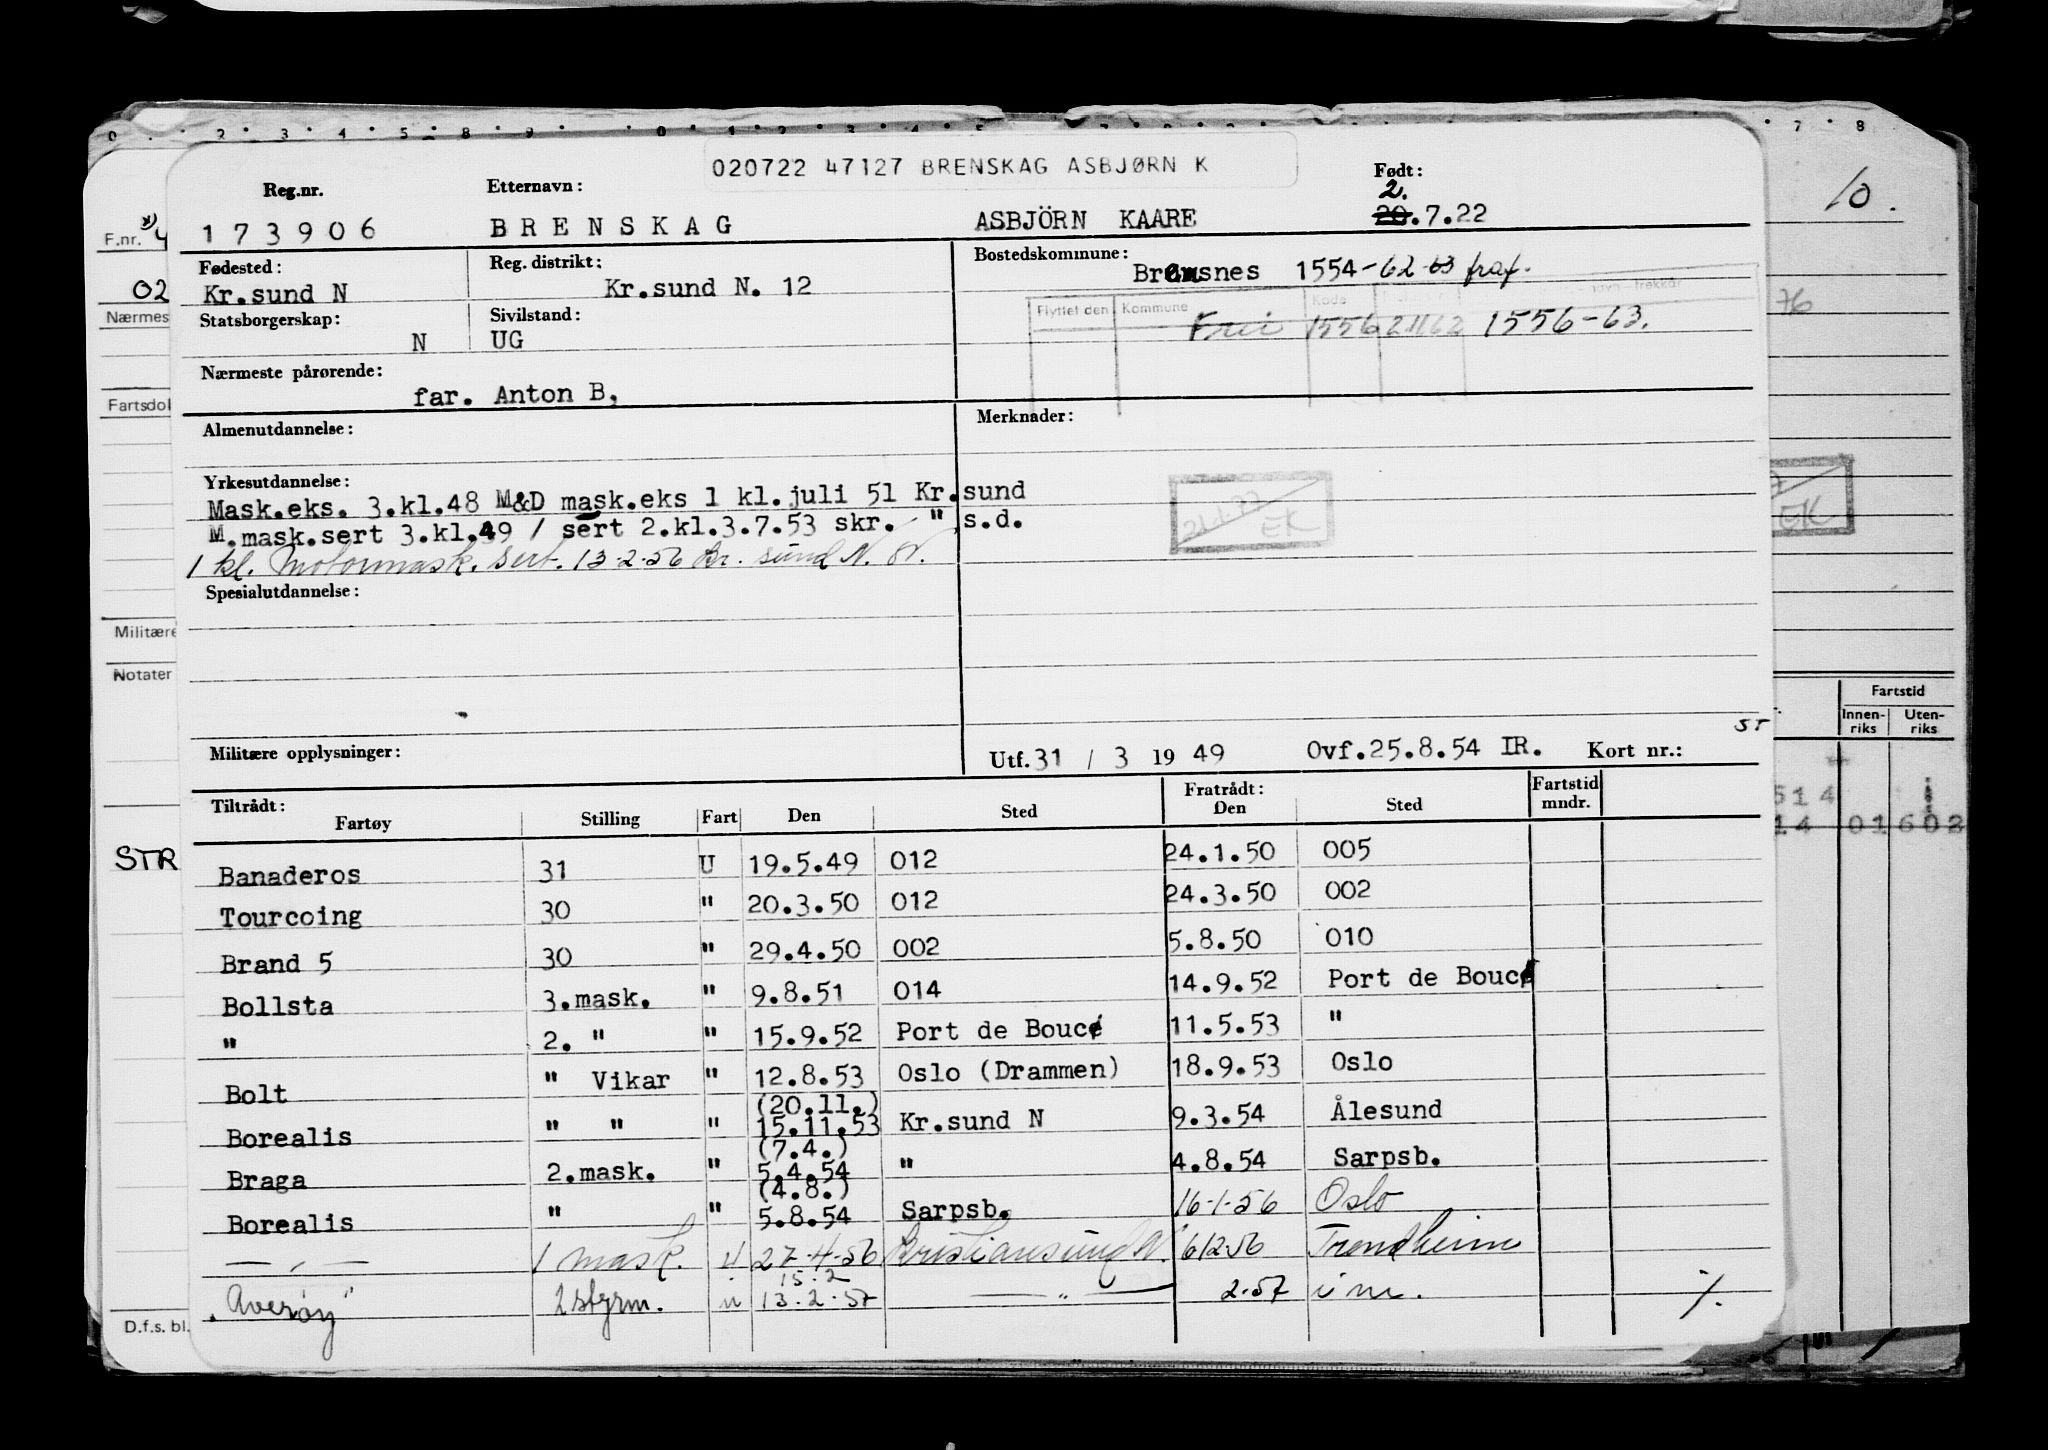 020722 47127 BRENSKAG ASBJØRN K
Reg.nr. Etternavn: Født:
2.
173906 BRENSKAG ASBJÖRN KAARE 20.7.22
10.
F.nr.
Fødested: Reg. distrikt: Bostedskommune:
Kr.sund N Kr.sund N. 12 Bremsnes 1554-62-63 fraf.
02
Nærmes
Statsborgerskap: Sivilstand:
N UG
Flyttet den Kommune Kode
Frei 1556 21162 1556-63.
76
Nærmeste pårørende:
far. Anton B,
Fartsdol
Almenutdannelse: Merknader:
Yrkesutdannelse:
Mask.eks. 3.kl.48 M&D mask.eks 1 kl.juli 51 Kr.sund
M.mask.sert 3.kl.49 / sert 2.kl.3.7.53 skr. " s.d.
1 kl. Motormask. sert. 13-2-56 Kr. sund N.
EK
EK
Spesialutdannelse:
Militære
Notater
Fartstid
Innenriks Utenriks
ST
Militære opplysninger: Utf. 31 / 3 19 49 Ovf.25.8.54 IR. Kort nr.:
514
14 01 602
Tiltrådt: Fratrådt: Fartstid
Fartøy Stilling Fart Den Sted Den Sted mndr.
STR
Banaderos 31 U 19.5.49 012 24.1.50 005
Tourcoing 30 " 20.3.50 012 24.3.50 002
Brand 5 30 " 29.4.50 002 5.8.50 010
Bollsta 3.mask. " 9.8.51 014 14.9.52 Port de Bouc
" 2. " " 15.9.52 Port de Bouc 11.5.53 "
Bolt " Vikar " 12.8.53 Oslo (Drammen) 18.9.53 Oslo
(20.11.)
Borealis " " " 15.11.53 Kr.sund N 9.3.54 Ålesund
(7.4.)
Braga 2.mask. " 5.4.54 " 4.8.54 Sarpsb.
(4.8.)
Borealis " " 5.8.54 Sarpsb. 16-1-56 Oslo
— " — 1 mask. u 27-4-56 Kristiansund N. 61256 Trondheim
15.2
"Averøy" 2 styrm. u 13.2-57 — " — 2-57 i m. %.
D.f.s. bl.